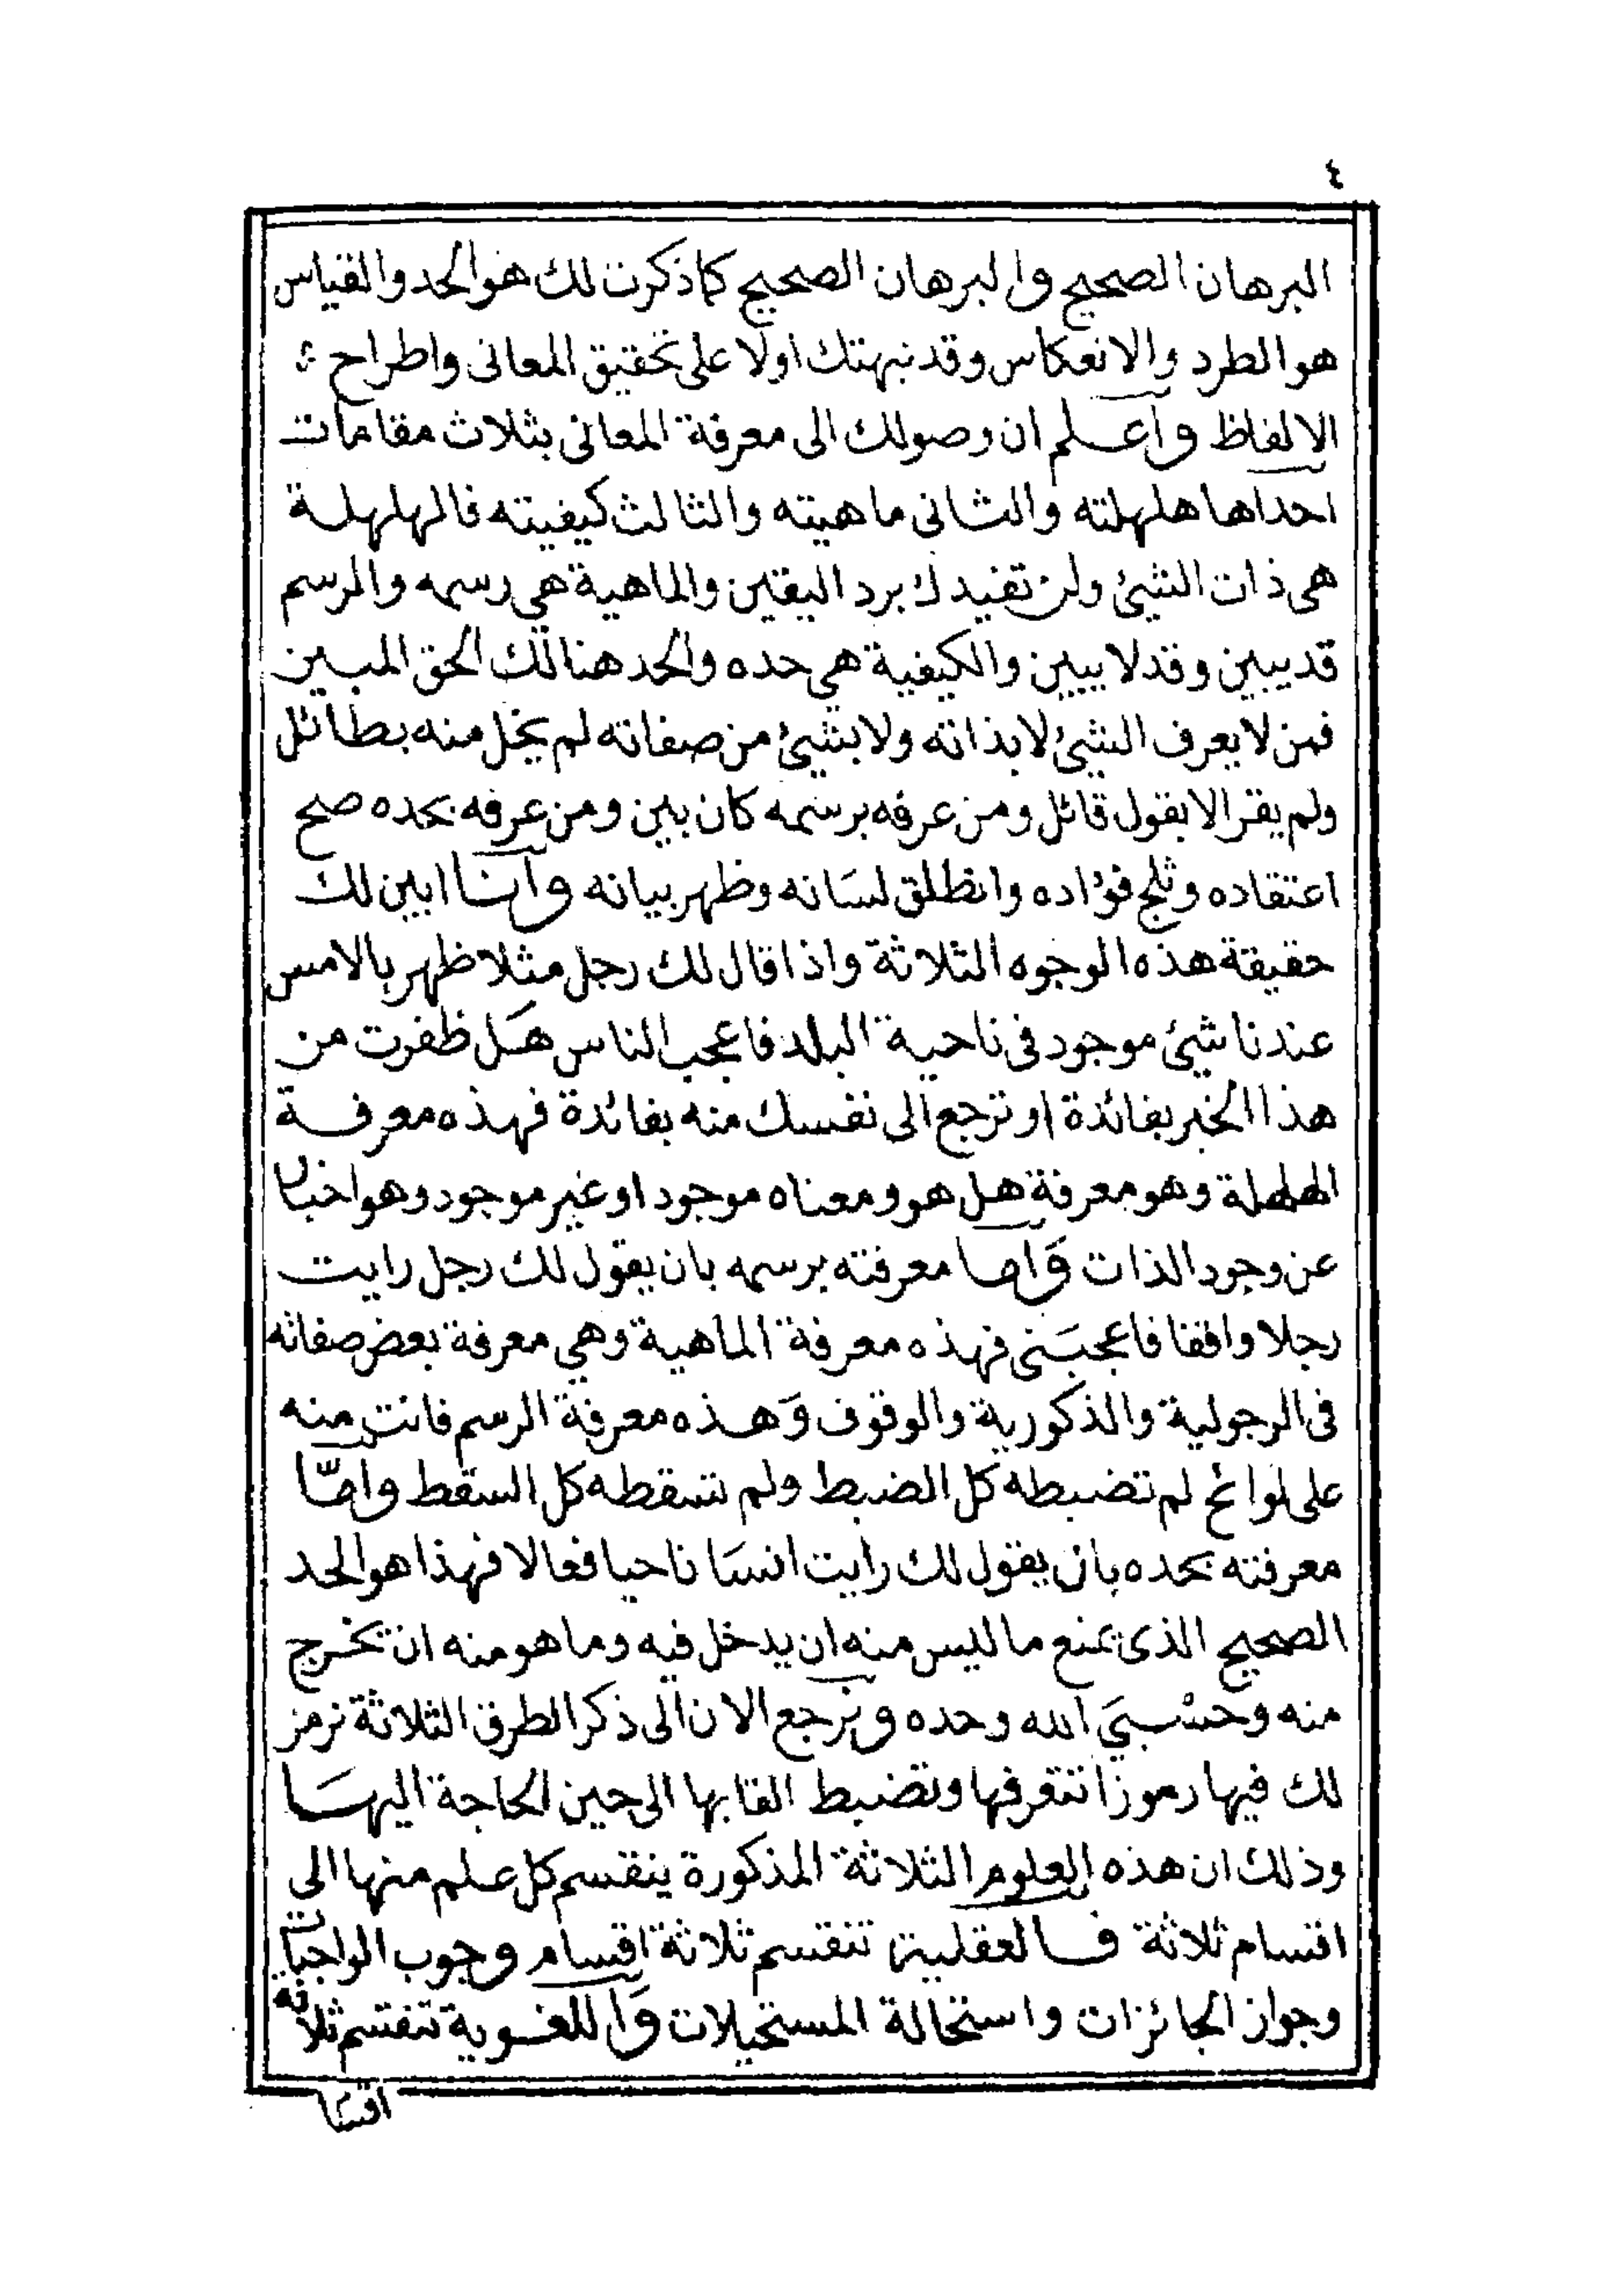 ٤
البرهان الصحيح والبرهان الصحيح كما ذكرت لك هو الحد والقياس
هو الطرد والانعكاس وقد نبهتك اولا على تحقيق المعانى واطراح
الالفاظ واعلم ان وصولك الى معرفة المعانى بثلاث مقامات
احداها هلهلته والثانى ماهيته والثالث كيفيته فالهلهلة
هى ذات الشيئ ولن تفيدك برد اليقين والماهية هي رسمه والرسم
قد يبين وقد لا يبين والكيفية هي حده والحد هنالك الحق المبين
فمن لا يعرف الشيئ لا بذاته ولا بشيئ من صفاته لم يخل منه بطائل
ولم يقر الا بقول قائل ومن عرفه برسمه كان بين ومن عرفه بحده صح
اعتقاده وثلج فؤاده وانطلق لسَانه وظهر بيانه وانا ابين لك
حقيقة هذه الوجوه الثلاثة واذا قال لك رجل مثلا ظهر بالامس
عندنا شيئ موجود فى ناحية البلد فاعجب الناس هَل ظفرت من
هذا الخبر بفائدة او ترجع الى نفسك منه بفائدة فهذه معرفة
الهلهلة وهو معرفة هل هو ومعناه موجود او غير موجود وهو اخبار
عن وجود الذات وَاما معرفته برسمه بان يقول لك رجل رايت
رجلا واقفا فاعجبَنى فهذه معرفة الماهية وهي معرفة بعض صفاته
فى الرجولية والذكورية والوقوف وَهذه معرفة الرسم فانت منه
على لوائح لم تضبطه كل الضبط ولم تسقطه كل السقط وامّا
معرفته بحده بان يقول لك رايت انسَانا حيا فعالا فهذا هو الحد
الصحيح الذى يمنع ما ليس منه ان يدخل فيه وما هو منه ان تخرج
منه وحسْبيَ الله وحده ونرجع الان الى ذكر الطرق الثلاثة نرمز
لك فيها رموزا تتعرفها وتضبط القابها الى حين الحاجة اليهَا
وذلك ان هذه العلوم الثلاثة المذكورة ينقسم كل علم منها الى
اقسام ثلاثة فالعقلية تنقسم ثلاثة اقسام وجوب الواجبات
وجواز الجائزات واستحالة المستحيلات وَاللغوية تنقسم ثلاثة
اقسَا